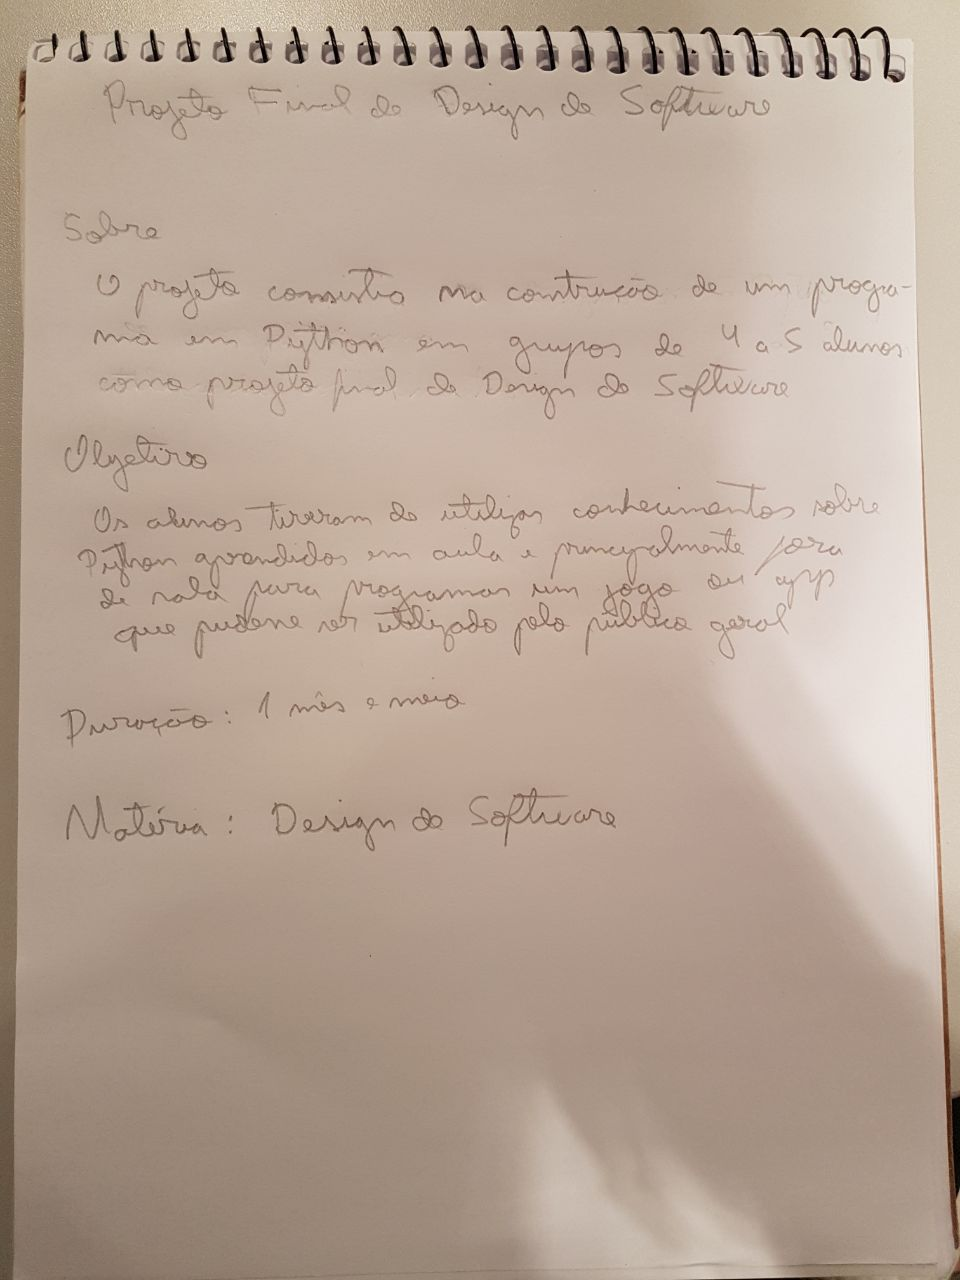 Projeto Final de Design de Software
Sobre
O projeto consistia na contrução de um progra-
ma em Python em grupos de 4 a 5 alunos
como projeto final de Design de Software
Objetivo
Os alunos tiveram de utilizar conhecimentos sobre
Python aprendidos em aula e principalmente fora
de sala para programar um jogo ou app
que pudesse ser utilizado pelo público geral
Duração: 1 mês e meio
Matéria: Design de Software